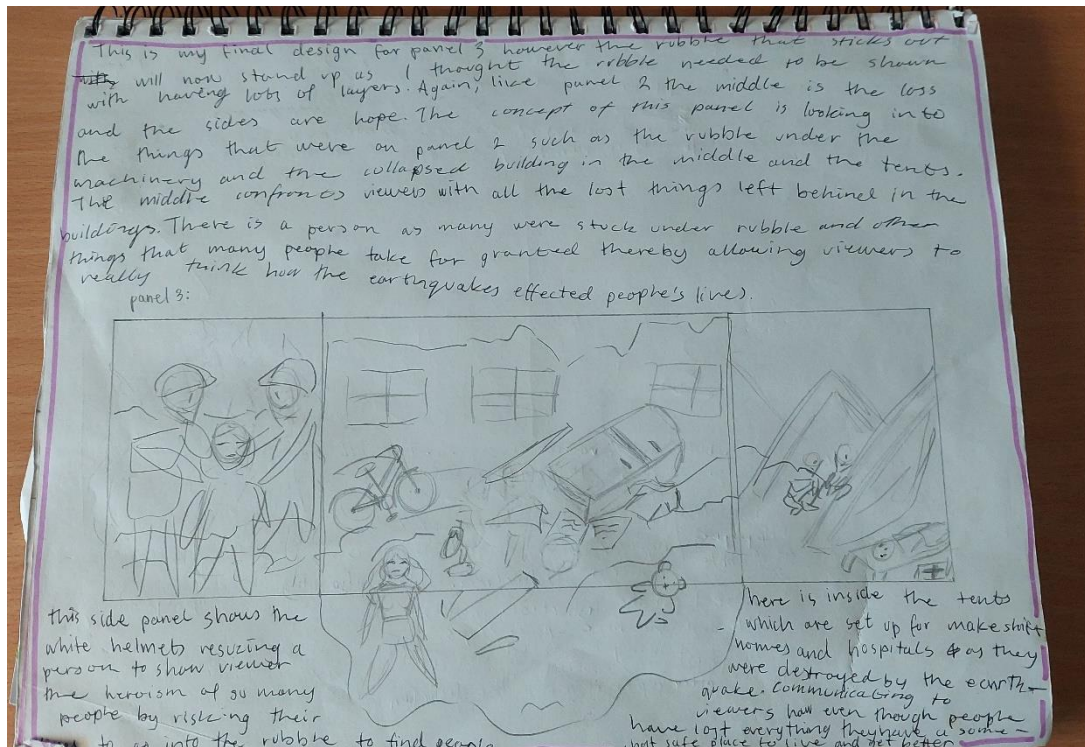 This is my final design for panel 3 however the rubble that sticks out
will now stand up as I thought the rubble needed to be shown
with having lots of layers. Again, like panel 2 the middle is the loss
and the sides are hope. The concept of this panel is looking into
the things that were on panel 2 such as the rubble under the
machinery and the collapsed building in the middle and the tents.
The middle confronts viewers with all the lost things left behind in the
buildings. There is a person as many were stuck under rubble and other
things that many people take for granted thereby allowing viewers to
really think how the earthquakes effected people's lives.
panel 3:
this side panel shows the
white helmets resuzing a
person to show viewer
the heroism of so many
people by risking their
to go into the rubble to find people
here is inside the tents
which are set up for makeshift
homes and hospitals as they
were destroyed by the earth-
quake. Communicating to
viewers how even though people
have lost everything they have a some-
what safe place to live and get better